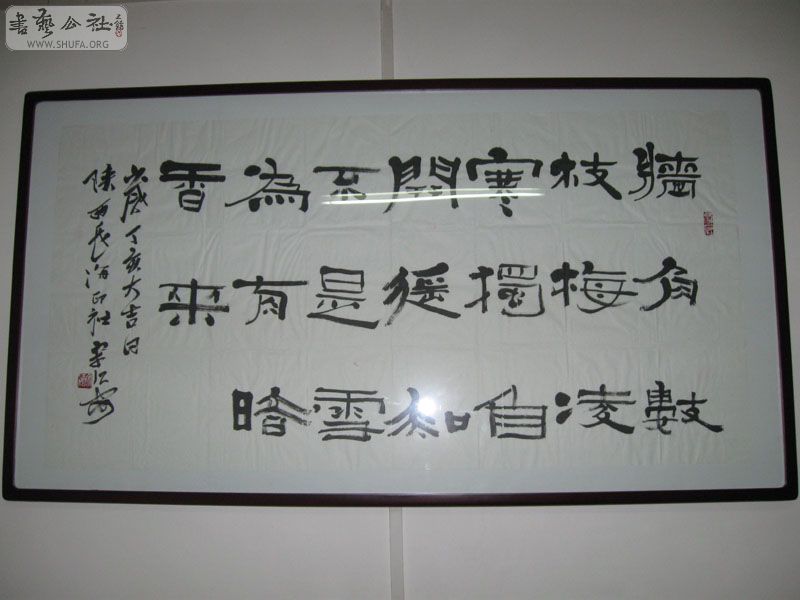 書藝公社
WWW.SHUFA.ORG
牆角數
枝梅凌
寒獨自
開遙知
不是雪
為有暗
香來
歲丁亥大吉日
陕西印社